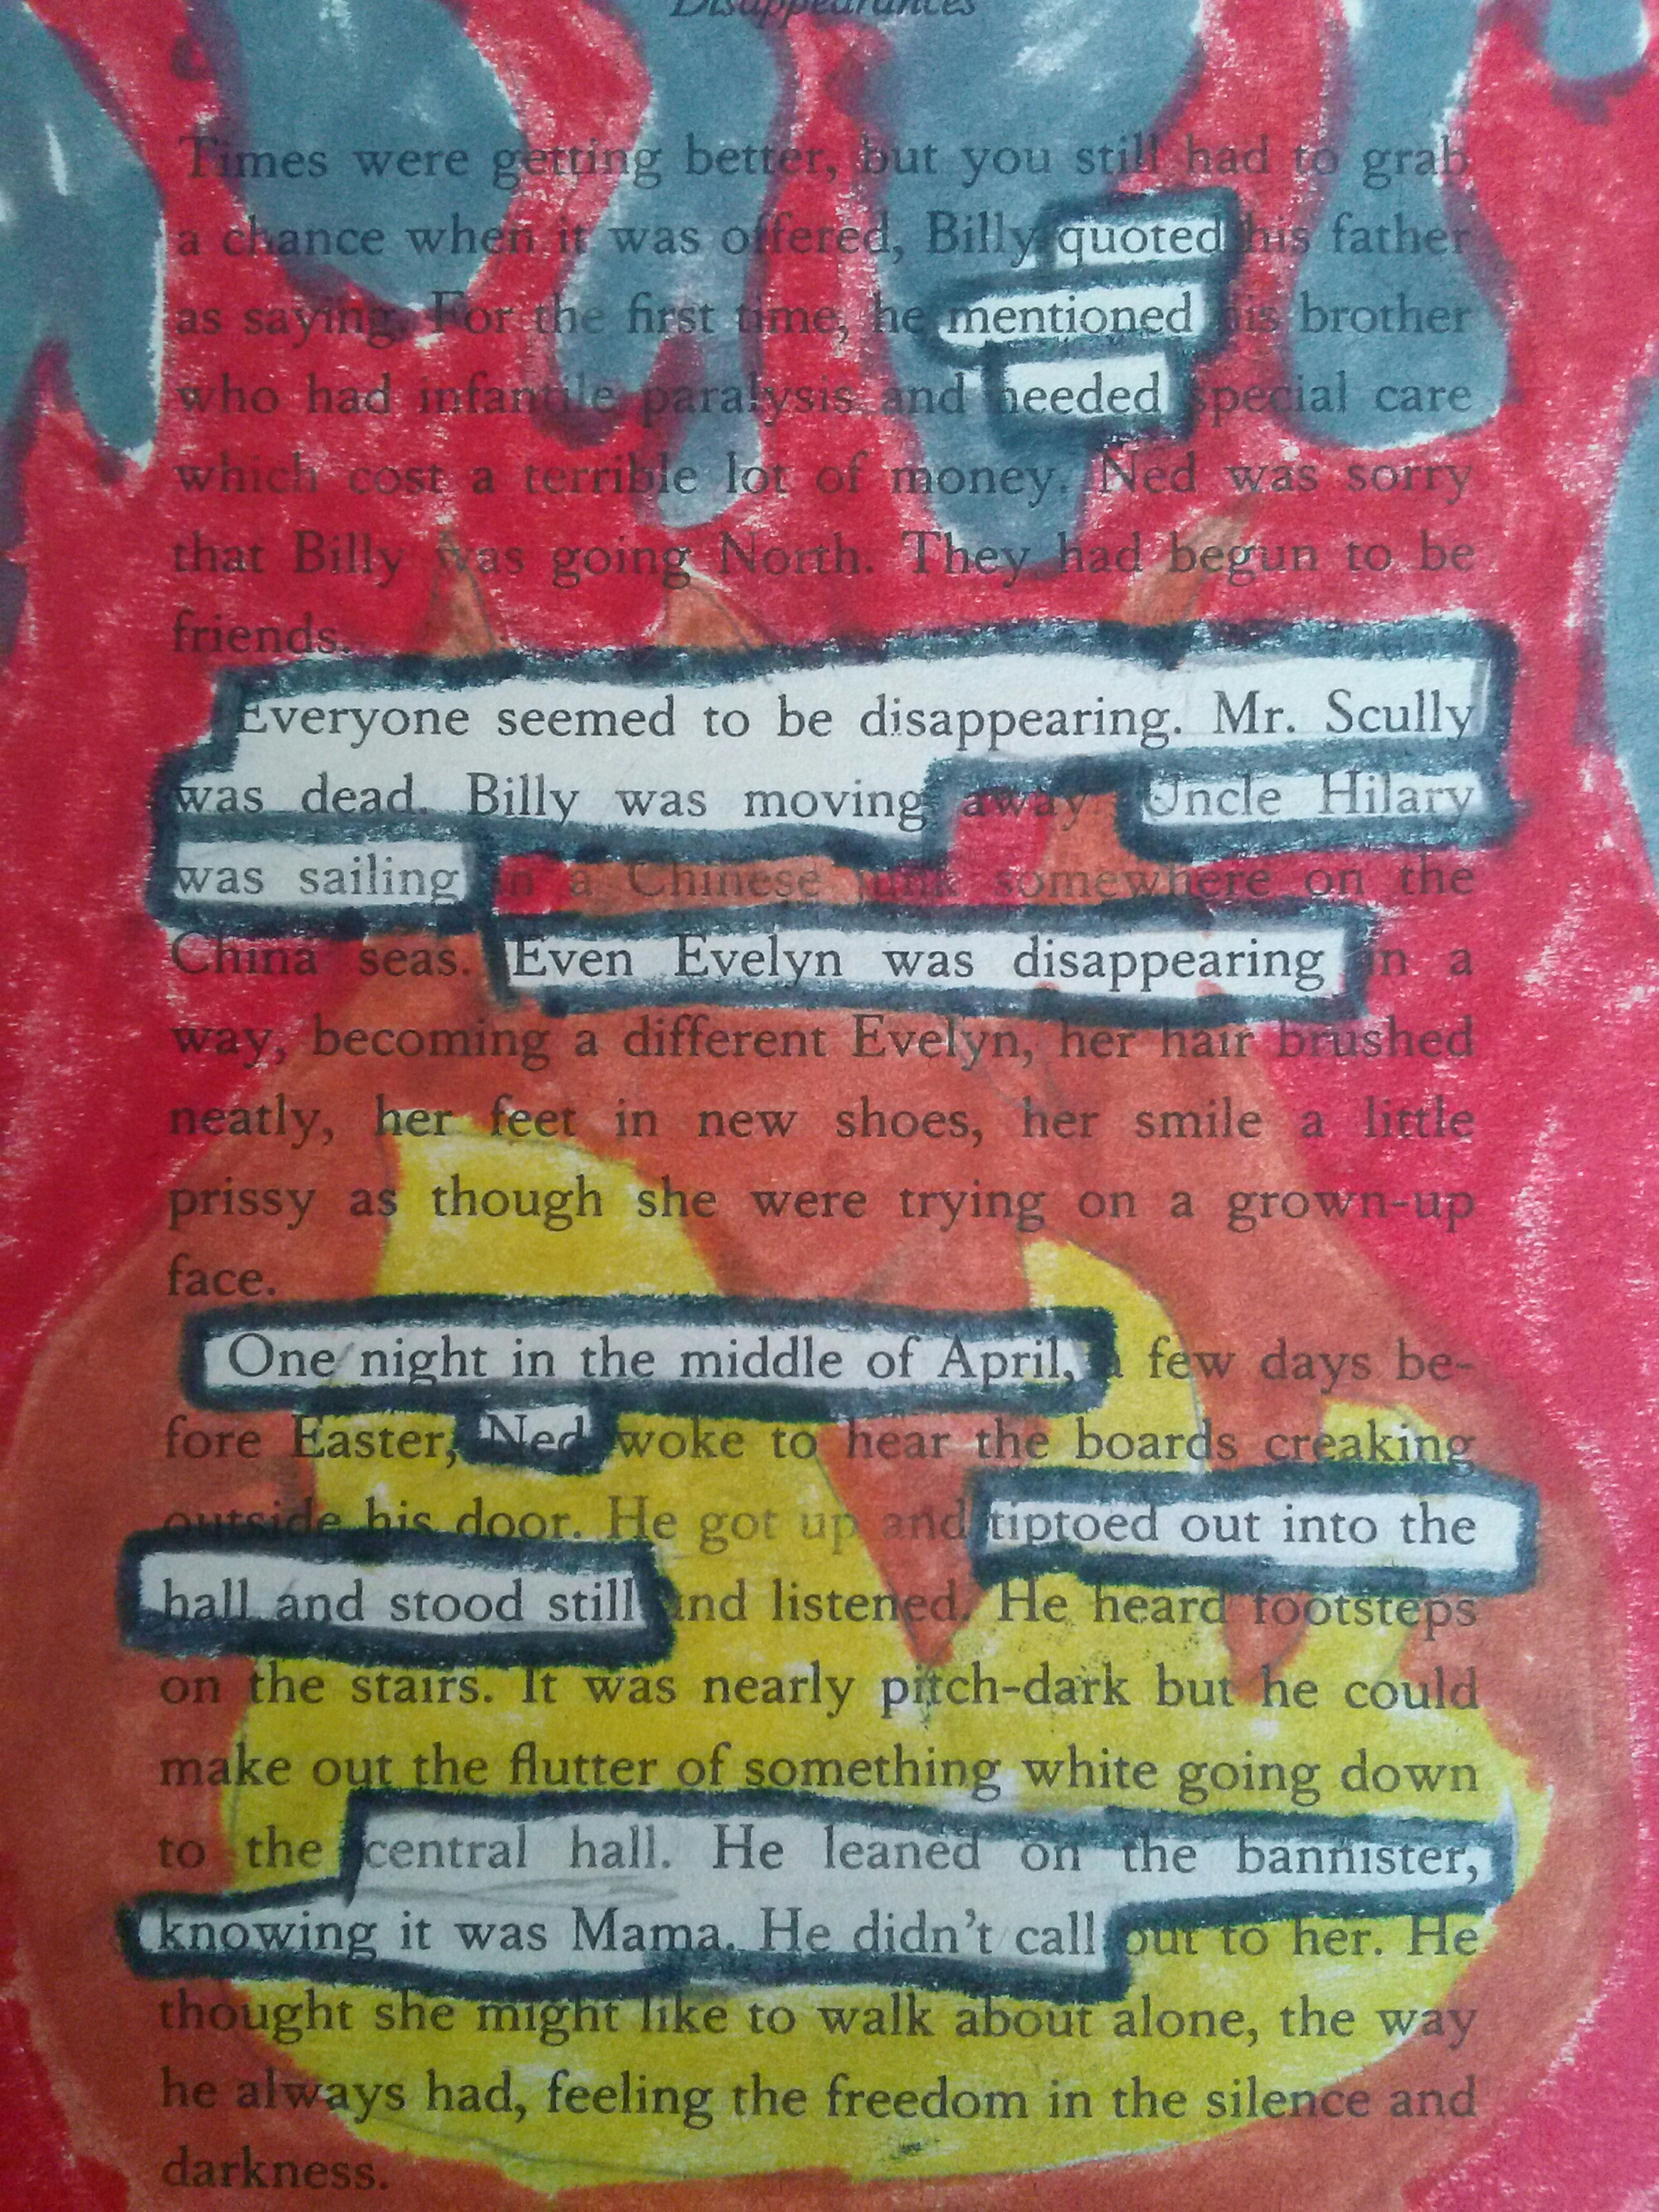 Disappearances
Times were getting better, but you still had to grab
a chance when it was offered, Billy quoted his father
as saying. For the first time, he mentioned his brother
who had infantile paralysis and needed special care
which cost a terrible lot of money. Ned was sorry
that Billy was going North. They had begun to be
friends.
Everyone seemed to be disappearing. Mr. Scully
was dead. Billy was moving away. Uncle Hilary
was sailing in a Chinese junk somewhere on the
China seas. Even Evelyn was disappearing in a
way, becoming a different Evelyn, her hair brushed
neatly, her feet in new shoes, her smile a little
prissy as though she were trying on a grown-up
face.
One night in the middle of April, a few days be-
fore Easter, Ned woke to hear the boards creaking
outside his door. He got up and tiptoed out into the
hall and stood still and listened. He heard footsteps
on the stairs. It was nearly pitch-dark but he could
make out the flutter of something white going down
to the central hall. He leaned on the bannister,
knowing it was Mama. He didn't call out to her. He
thought she might like to walk about alone, the way
he always had, feeling the freedom in the silence and
darkness.